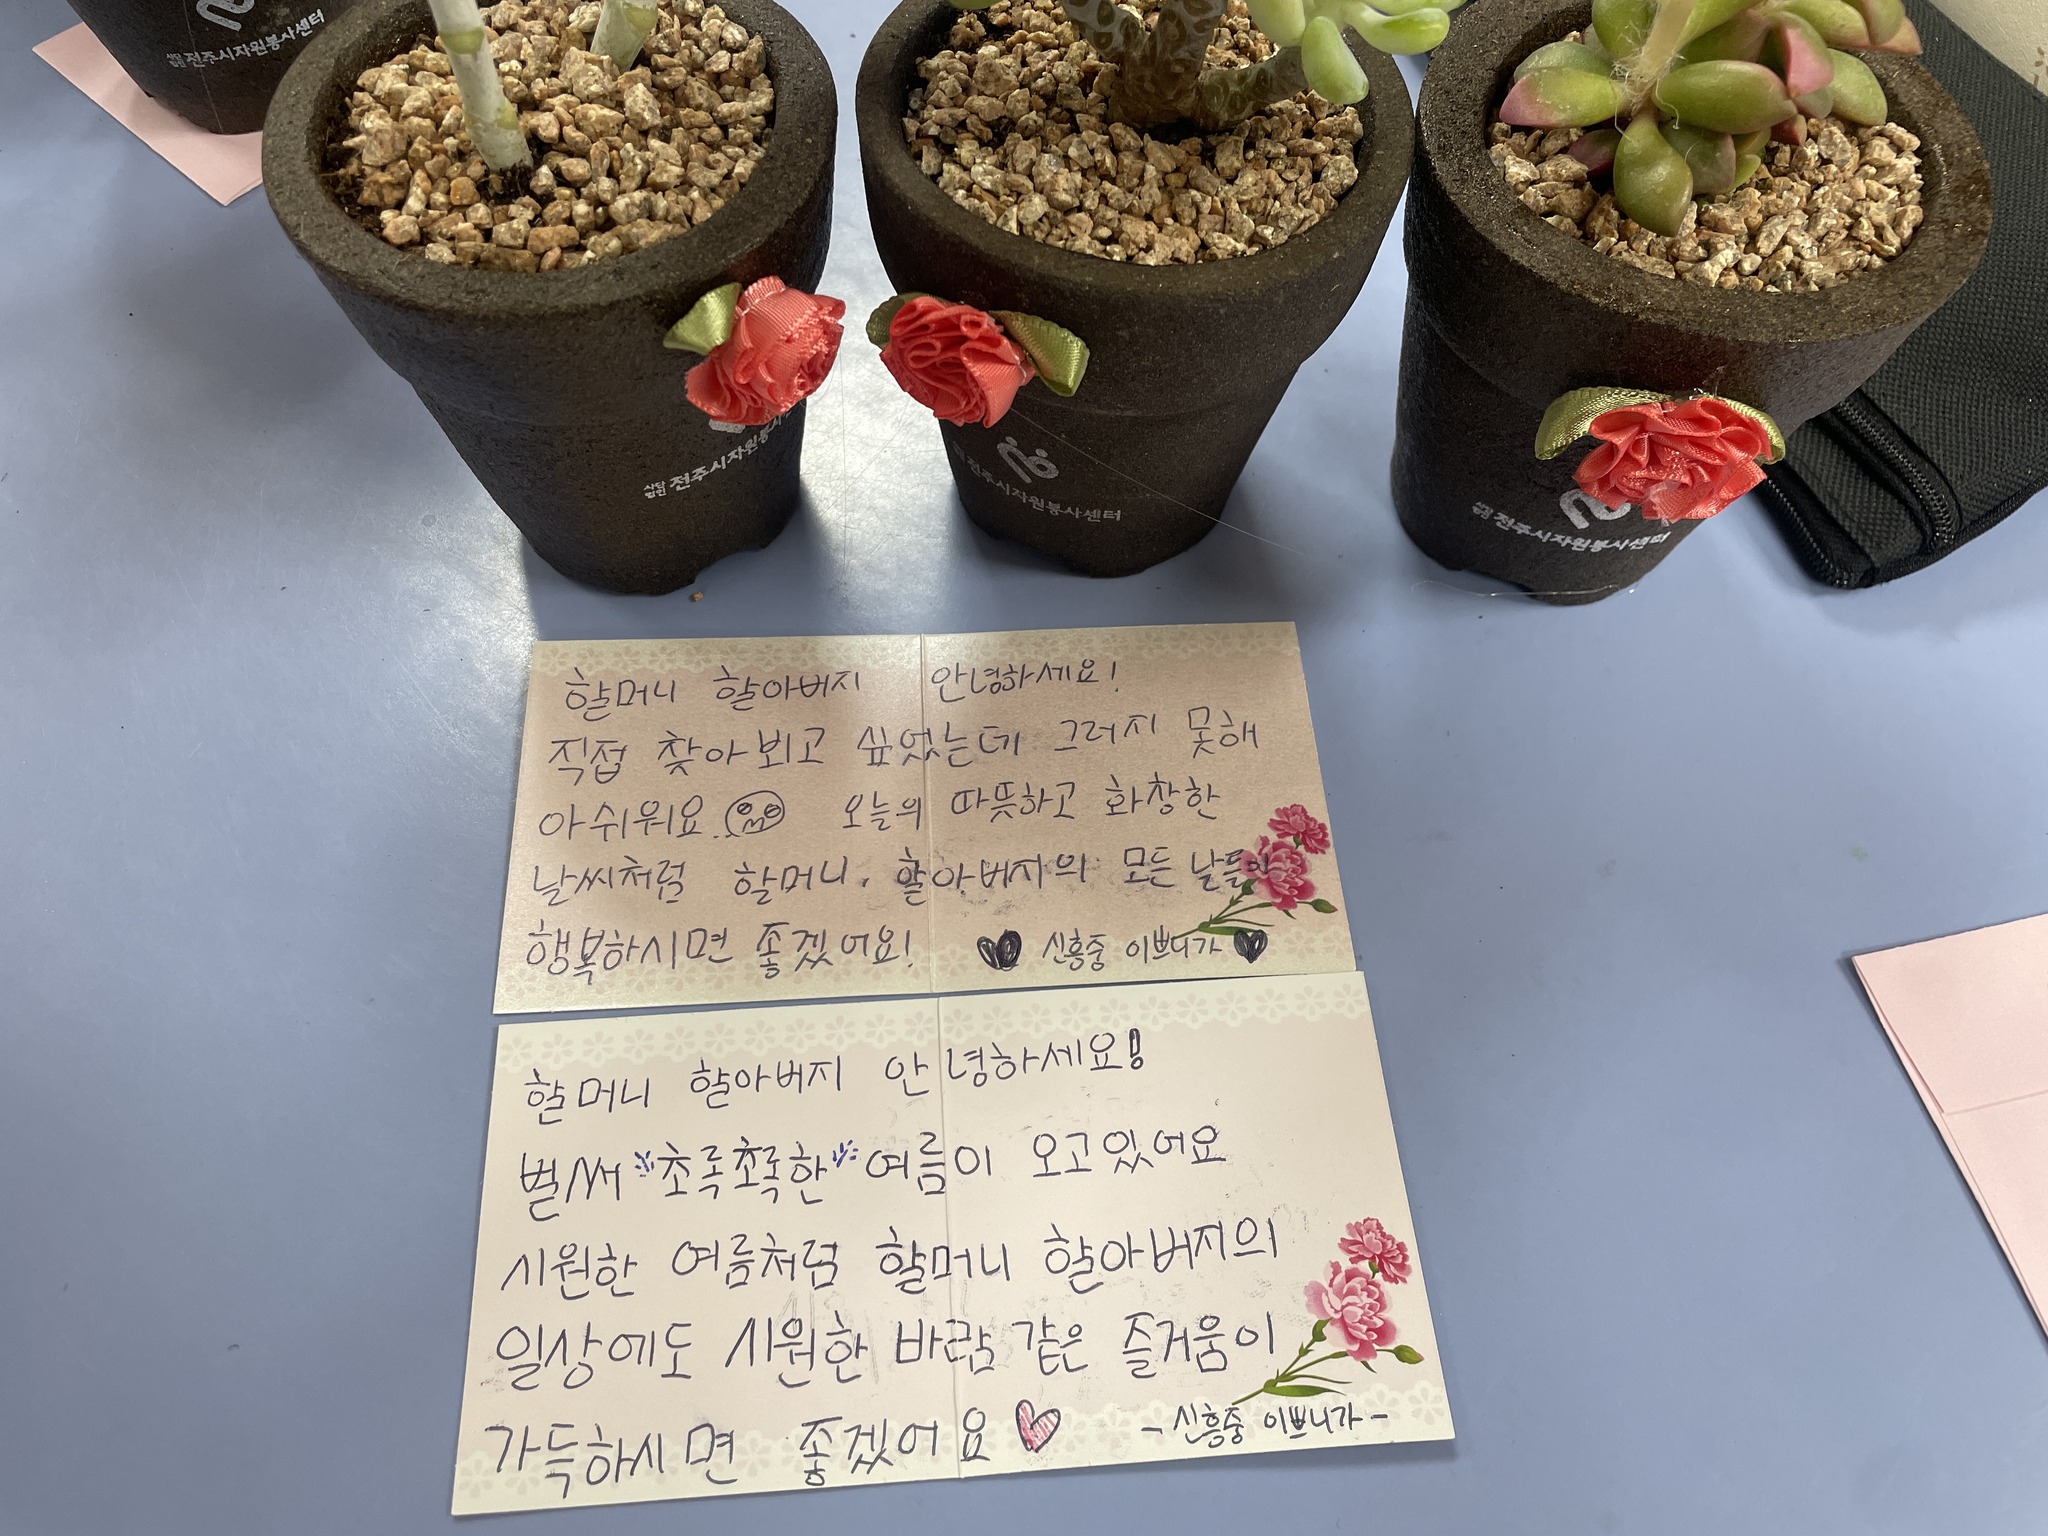 사단법인 전주시자원봉사센터
사단법인 전주시자원봉사
전주시자원봉사센터
사단법인 전주시자원봉사센터
할머니 할아버지 안녕하세요!
직접 찾아뵈고 싶었는데 그러지 못해
아쉬워요. 오늘의 따뜻하고 화창한
날씨처럼 할머니, 할아버지의 모든 날들이
행복하시면 좋겠어요! 신흥중 이쁘니가
할머니 할아버지 안녕하세요!
벌써 초록초록한 여름이 오고있어요
시원한 여름처럼 할머니 할아버지의
일상에도 시원한 바람 같은 즐거움이
가득하시면 좋겠어요 - 신흥중 이쁘니가 -